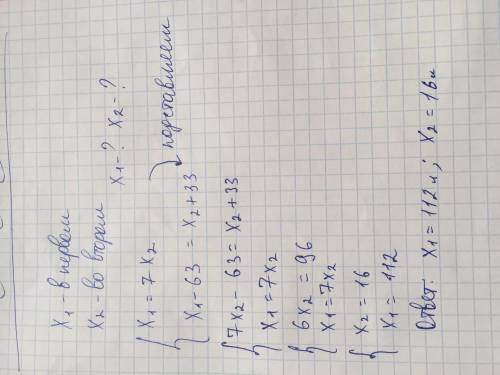 x₁ - в первом
x₂ - во втором
x₁ = ? x₂ = ?
{ x₁ = 7x₂
{ x₁ - 63 = x₂ + 33
подставляем
{ 7x₂ - 63 = x₂ + 33
{ x₁ = 7x₂
{ 6x₂ = 96
{ x₁ = 7x₂
{ x₂ = 16
{ x₁ = 112
Ответ x₁ = 112 л; x₂ = 16 л